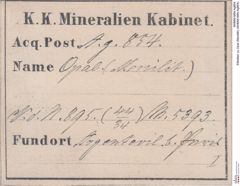 K.K. Mineralien Kabinet.
Acq. Post A. g. 854.
Name Opal (Menilit.)
895. (44/34) M. 5393.
Fundort Argenteuil b. Paris